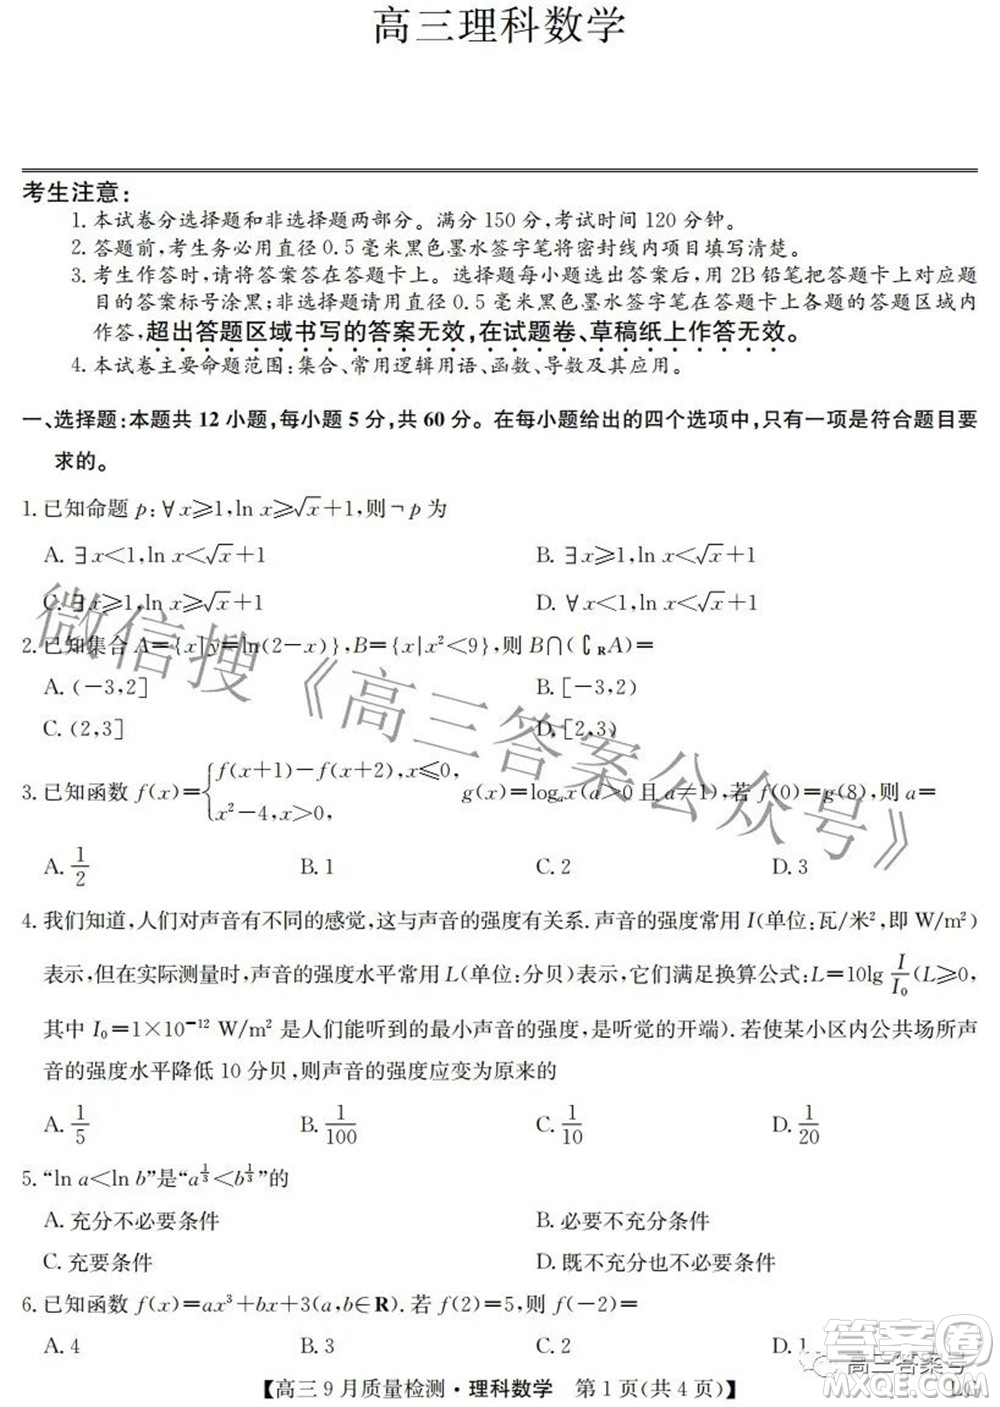 高三理科数学
考生注意:
1.本试卷分选择题和非选择题两部分。满分150分,考试时间120分钟。
2.答题前,考生务必用直径0.5毫米黑色墨水签字笔将密封线内项目填写清楚。
3.考生作答时,请将答案答在答题卡上。选择题每小题选出答案后,用2B铅笔把答题卡上对应题
目的答案标号涂黑;非选择题请用直径0.5毫米黑色墨水签字笔在答题卡上各题的答题区域内
作答,超出答题区域书写的答案无效,在试题卷、草稿纸上作答无效。
4.本试卷主要命题范围:集合、常用逻辑用语、函数、导数及其应用。
一、选择题:本题共12小题,每小题5分,共60分。在每小题给出的四个选项中,只有一项是符合题目要
求的。
1.已知命题 p:∀x≥1,ln x≥√x+1,则¬p为
A.∃x<1,ln x<√x+1 B.∃x≥1,ln x<√x+1
C.∃x≥1,ln x≥√x+1 D.∀x<1,ln x<√x+1
2.已知集合 A={x|y=ln(2-x)},B={x|x²<9},则 B∩(∁RA)=
A.(-3,2] B.[-3,2)
C.(2,3] D.[2,3)
3.已知函数 f(x)={f(x+1)-f(x+2),x≤0, x²-4,x>0, g(x)=logₐx(a>0且a≠1),若 f(0)=g(8),则 a=
A.1/2 B.1 C.2 D.3
4.我们知道,人们对声音有不同的感觉,这与声音的强度有关系.声音的强度常用 I(单位:瓦/米²,即 W/m²)
表示,但在实际测量时,声音的强度水平常用 L(单位:分贝)表示,它们满足换算公式:L=10lg I/I₀(L≥0,
其中 I₀=1×10⁻¹² W/m² 是人们能听到的最小声音的强度,是听觉的开端).若使某小区内公共场所声
音的强度水平降低10分贝,则声音的强度应变为原来的
A.1/5 B.1/100 C.1/10 D.1/20
5.“ln a<ln b”是“a^(1/3)<b^(1/3)”的
A.充分不必要条件 B.必要不充分条件
C.充要条件 D.既不充分也不必要条件
6.已知函数 f(x)=ax³+bx+3(a,b∈R).若 f(2)=5,则 f(-2)=
A.4 B.3 C.2 D.1
【高三9月质量检测·理科数学 第1页(共4页)】
微信搜《高三答案公众号》
高三答案号
答案圈